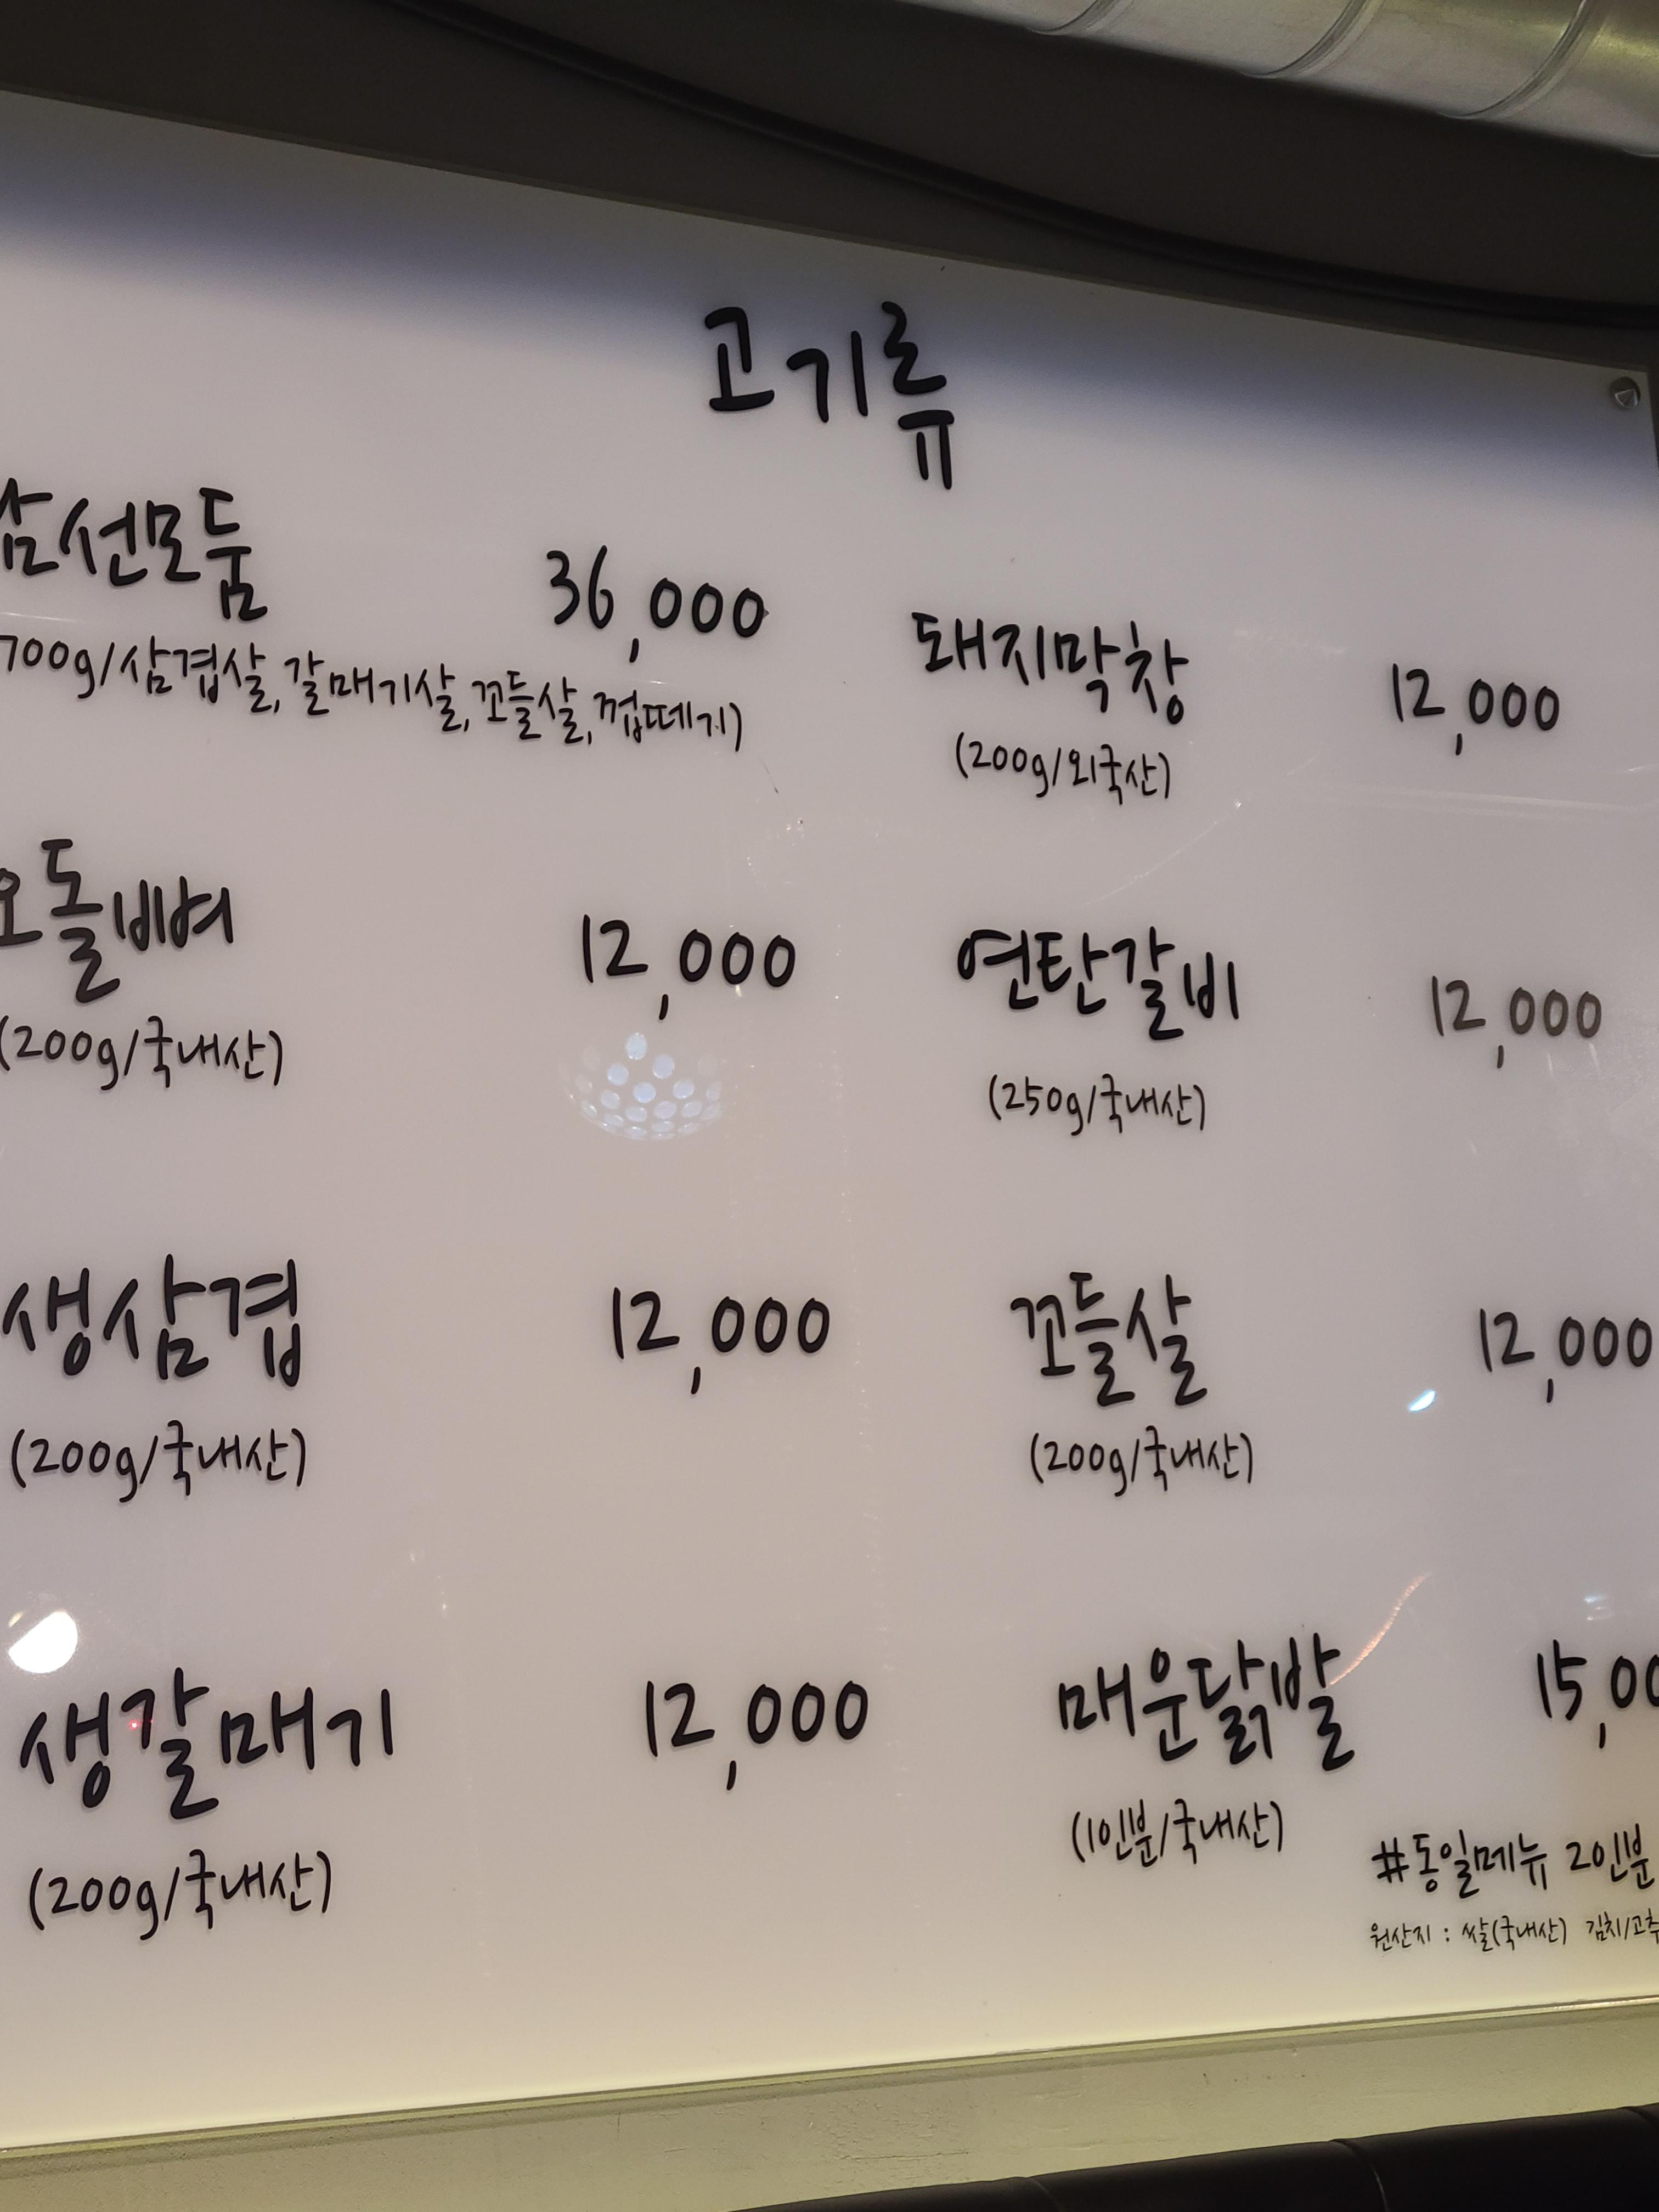 고기류
삼선모둠 36,000
700g/삼겹살, 갈매기살, 꼬들살, 껍떼기)
오돌삐벼 12,000
(200g/국내산)
생삼겹 12,000
(200g/국내산)
생갈매기 12,000
(200g/국내산)
돼지막창 12,000
(200g/외국산)
연탄갈비 12,000
(250g/국내산)
꼬들살 12,000
(200g/국내산)
매운닭발 15,00
(1인분/국내산)
#동일메뉴 2인분
원산지 : 쌀(국내산) 김치/고추